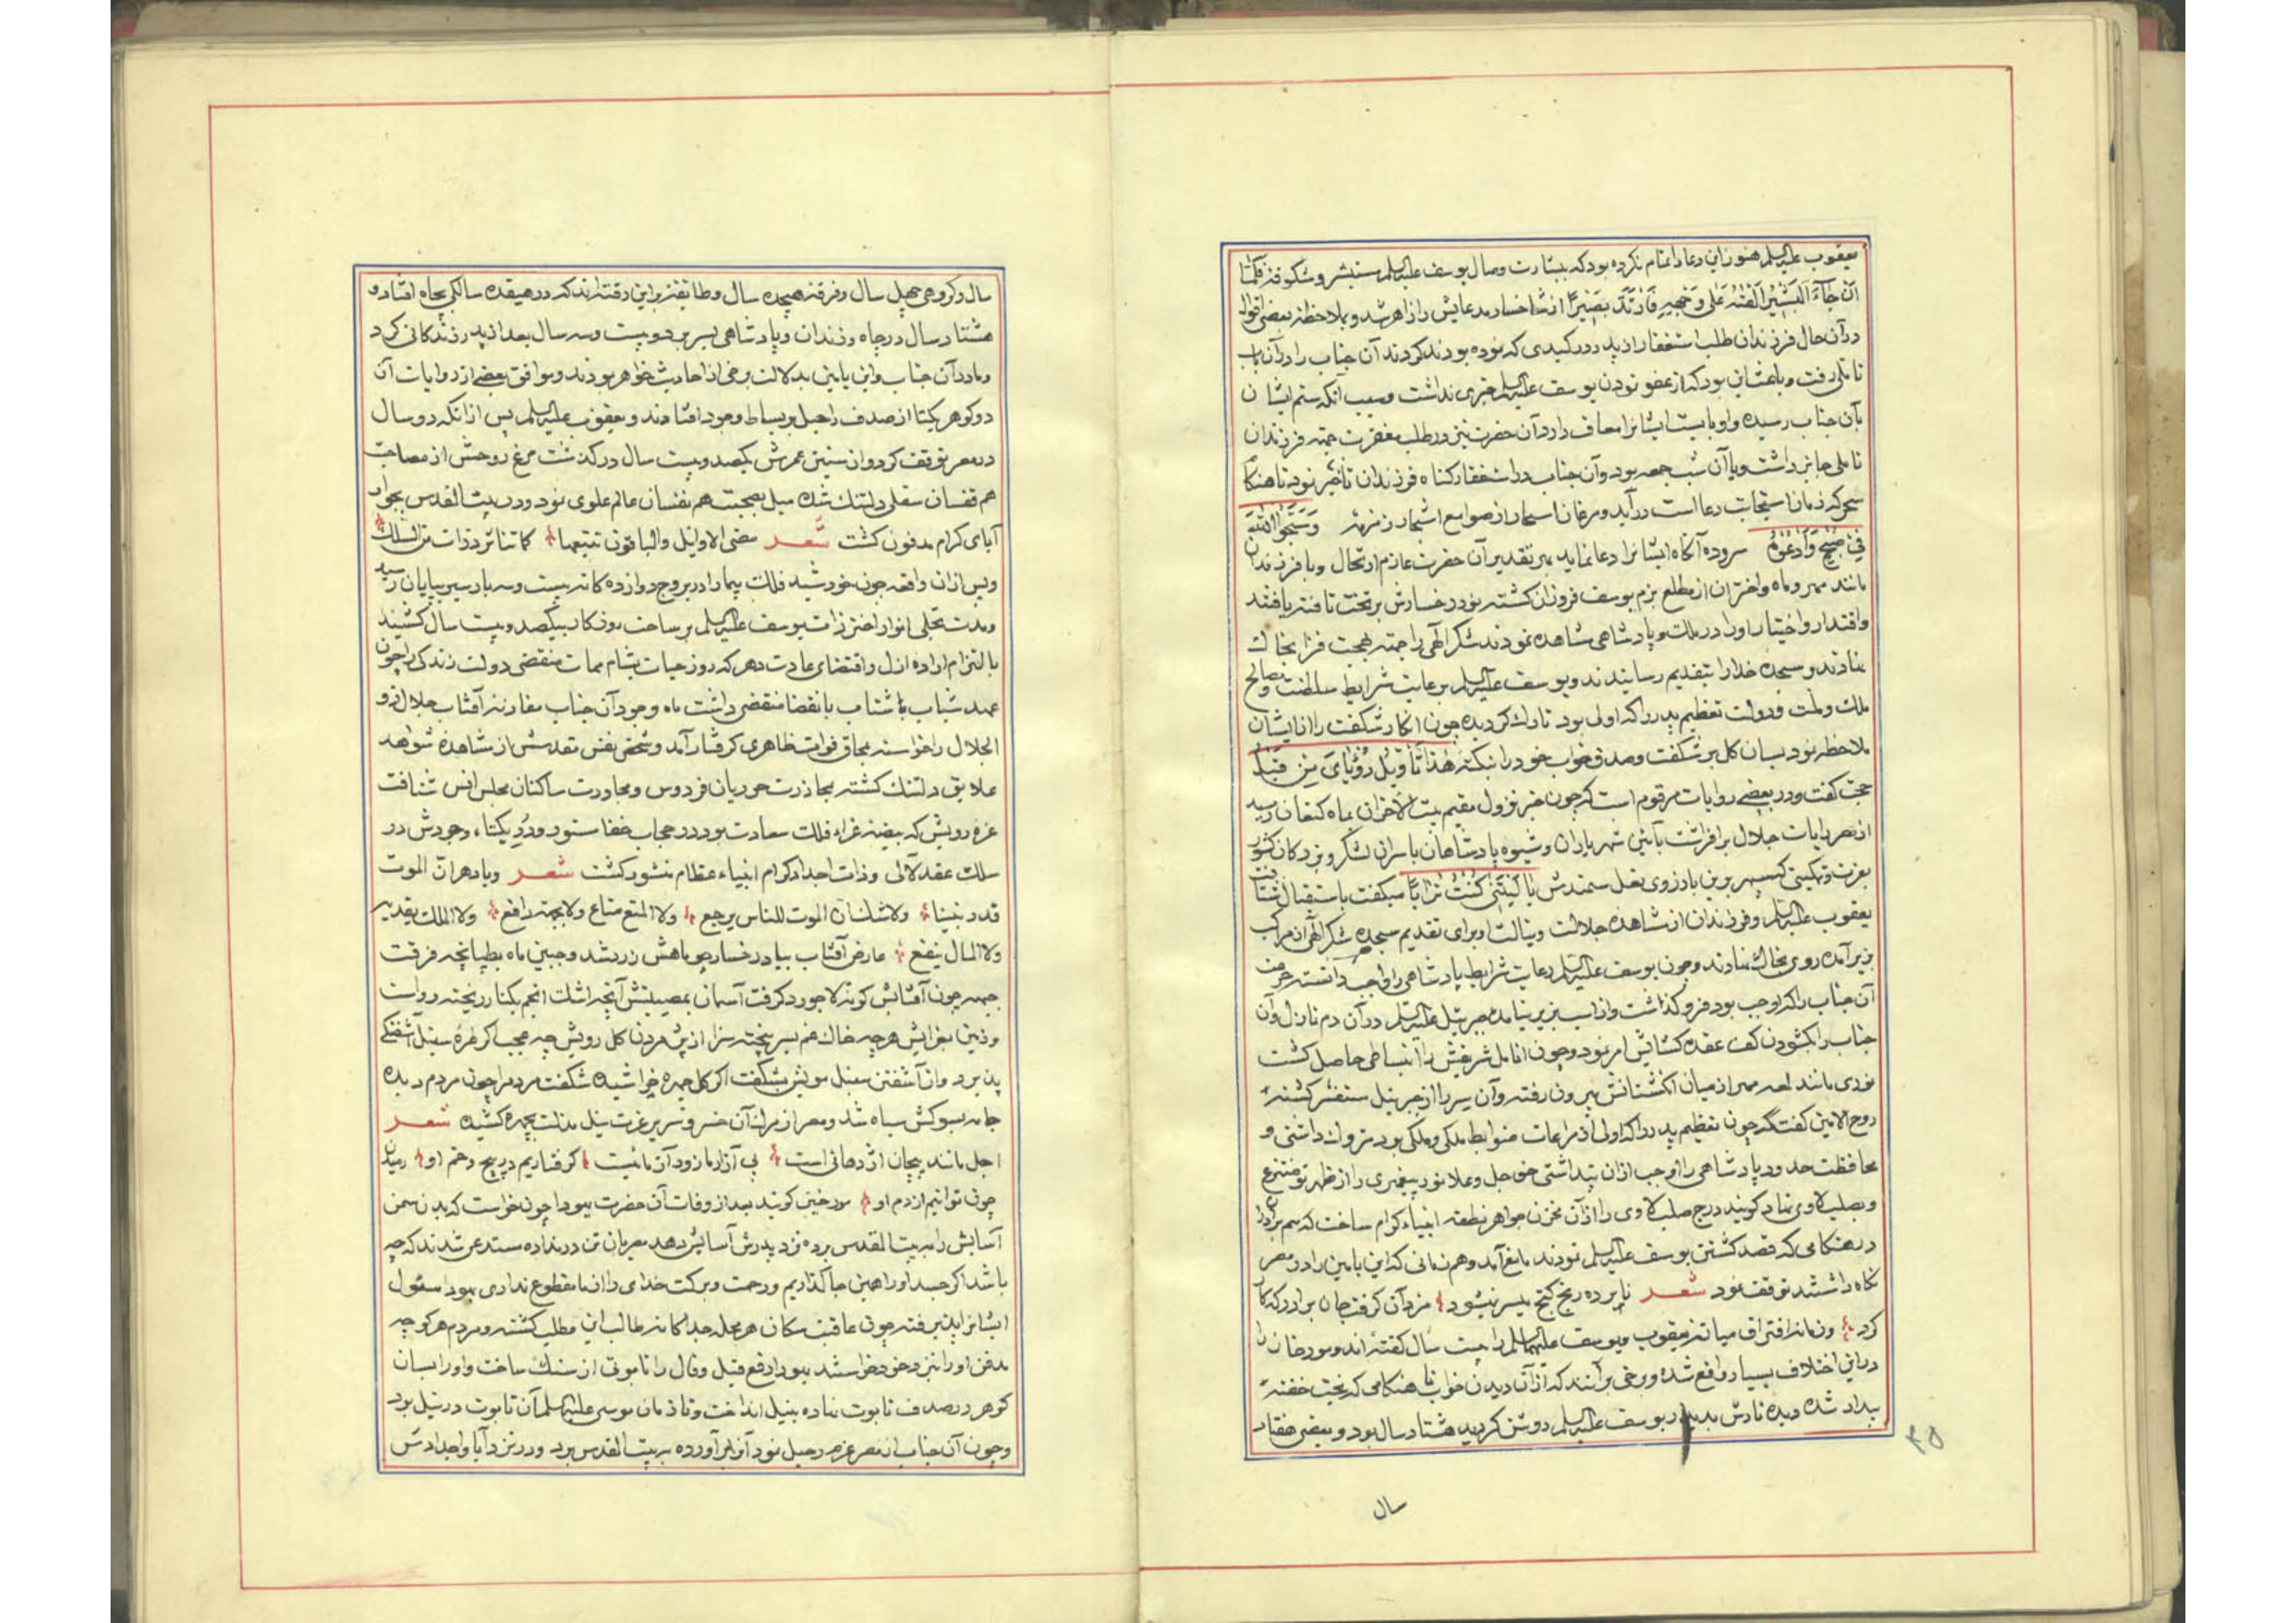 یعقوب علیه السلم هنوز این دعا را تمام نکرده بود که ببشارت وصال یوسف علیه السلم مستبشر و شکوفه فلمّا
ان جَاءَ البَشیرُ اَلقٰیهُ عَلی وَجهِهِ فَارتَدَّ بَصیراً از شاخسار مدعایش را زاهر شد و بملاحظه بعضی اقوال
در آن حال فرزندان طلب استغفار از پدر در کیدی که نموده بودند کردند آن جناب را در آن باب
تاملی رفت و باعث آن بود که از عفو نمودن یوسف علیه السلم خبری نداشت و سبب آنکه ستم ایشان
بآن جناب رسیده و او بایست ایشانرا معاف دارد آن حضرت نیز در طلب مغفرت جهته فرزندان
تاملی جایز داشت و یا آن شب جمعه بود و آن جناب در استغفار کناه فرزندان تاخیر نمود تا هنکام
سحر که زمان استجابت دعا است درآید و مرغان اسحار از صوامع اشجار زمزمه
سروده آنکاه ایشانرا دعا نماید بهر تقدیر آن حضرت عازم ارتحال و با فرزندان
مانند مهر و ماه و اختران از مطلع بزم یوسف فروزان کشته نور رخسارش بر تخت تافته یافتند
واقتدار و اختیار او را در ملک و پادشاهی مشاهده نمودند شکر الهی را جبهه بهجت فزا بخاک
نهادند و سجده خدا را بتقدیم رسانیدند و یوسف علیه السلم برعایت شرایط سلطنت و مصالح
ملک و ملت و دولت تعظیم پدر را که اولی بود تارک کردیده چون انکار شکفت را از ایشان
ملاحظه نمود بسان کل برشکفت و صدق خواب خود را بنکته هٰذا تَأویلُ رُؤیایَ مِن قَبلُ
حجت کفت و در بعضی روایات مرقوم است که چون خبر نزول مقیم بیت الاحزان بماه کنعان رسید
از مصر رایات جلال برافراشت بآئین شهریاران و شیوه پادشاهان با سران لشکر و بزرکان کشور
بعزت و تمکینی که سپهر برین بارزوی نعل سمندش یا لَیتَنی کُنتُ تُراباً میکفت باستقبال شتافت
یعقوب علیه السلم و فرزندان از مشاهده جلالت و نبالت او برای تقدیم سجده شکر الهی از مراکب
بزیر آمده روی بخاک نهادند و چون یوسف علیه السلم رعایت شرایط پادشاهی را واجب دانسته حرمت
آن جناب را که اوجب بود فرو کذاشت و از اسب بزیر نیامده جبرئیل علیه السلم در آن دم نازل و آن
جناب را بکشودن کف عقده کشائیش امر نمود و چون انامل شریفش را انبساطی حاصل کشت
نوری مانند لمعه مهر از میان انکشتانش بیرون رفته و آن سر را از جبرئیل مستفسر کشته
روح الامین کفت که چون تعظیم پدر را که اولی از مراعات ضوابط ملکی و ملکی بود متروک داشتی و
محافظت حدود پادشاهی را اوجب از آن پنداشتی حق جل و علا نور پیغمبری را از ظهر تو منتزع
و بصلب لاوی نهاد کویند درج صلب لاوی را از آن مخزن جواهر نطفه انبیاء کرام ساخت که هم برادران
در هنکامی که قصد کشتن یوسف علیه السلم نمودند مانع آمد و هم زمانی که ابن یامین را در مصر
نکاه داشتند توقف نمود شعر نابرده رنج کنج میسر نمیشود مزد آن کرفت جان برادر که کار
کرد و زمان افتراق میانه یعقوب و یوسف علیهما السلم را بیست سال کفته اند و مورخان را
در این اختلاف بسیار واقع شده و برخی برآنند که از آن دیدن خواب تا هنکامی که بخت خفته
بیدار شده دیده تارش بدیدار یوسف علیه السلم روشن کردید هشتاد سال بود و بعضی هفتاد
سال
۳۵
سال و کروهی چهل سال و فرقه هیجده سال و طایفه براین رفته اند که در هیفده سالکی بچاه افتاد و
هشتاد سال در چاه و زندان و پادشاهی بسر برد و بیست و سه سال بعد از پدر زندکانی کرد
و مادر آن جناب و ابن یامین بدلالت برخی از احادیث خواهر بودند و موافق بعضی از روایات آن
دو کوهر یکتا از صدف راحیل بر بساط وجود افتادند و یعقوب علیه السلم پس از انکه دو سال
در مصر توقف کرد و از سنین عمرش یکصد و بیست سال در کذشت مرغ روحش از مصاحبت
هم قفسان سفلی دلتنک شده میل بصحبت هم نفسان عالم علوی نمود و در بیت المقدس بجوار
آبای کرام مدفون کشت شعر مضی الاوایل والباقون تتبعها کما تناثر ذرات من السلک
و پس از ان واقعه چون خورشید فلک پیما را در بروج دوازده کانه بیست و سه بار سیر بپایان رسید
و مدت تجلی انوار اختر ذات یوسف علیه السلم بر ساحت روزکار بیکصد و بیست سال کشید
بالتزام اراده ازل و اقتضای عادت دهر که روز حیات بشام ممات منقضی دولت زندکی را چون
عهد شباب با شتاب بانقضا منقضی داشت ماه وجود آن جناب مقارنه آفتاب جلال ذو
الجلال را خواسته بمحاق فوات ظاهری کرفتار آمد و شخص نفس مقدسش از مشاهده شواهد
علایق دلتنک کشته بمحاذرت حوریان فردوس و مجاورت ساکنان مجلس انس شتافت
غره رویش که بیضه غراء فلک سعادت بود در حجاب خفا مستور و دُرِ یکتاء وجودش در
سلک عقد لآلی و ذات اجداد کرام انبیاء عظام منشور کشت شعر و یا دهران الموت
قدد نبینا ولا شک ان الموت للناس یرجع ولا المنع متاع ولا بجهة رافع ولا الملک یفدیه
ولا المال ینفع عارض آفتاب بیاد رخسار چو ماهش زرد شد و جبین ماه بطپانچه فرقت
جبهه چون آفتابش کونه لاجورد کرفت آسمان بمصیبتش آنچه اشک انجم بکنار ریخته رواست
و زمین بعزایش هر چه خاک غم بسر بیخته سزا از پژمردن کل رویش چه عجب اکر طره سنبل آشفتکی
پذیرد و از آشفتن سنبل مویش بشکفت اکر کل چهره خراشیده شکفت مردم را چون مردم دیده
جامه بسوکش سیاه شد و مصر از مرک آن خسرو سریر عزت نیل مذلت بچهره کشیده شعر
اجل مانند پیچان اژدهائی است پی آزار ما زور آزمائیست کرفتاریم در پیچ و خم او رهیدن
چون توانیم از دم او مورخین کویند بعد از وفات آن حضرت یهودا چون خواست که بدن سمن
آسایش را به بیت المقدس برده نزد پدرش آسایش دهد مصریان تن در نداده مستدعی شدند که چه
باشد اکر جسد او را همین جا کذاریم و رحمت و برکت خدای را از ما مقطوع نداری یهودا مسئول
ایشانرا پذیرفته چون عاقبت سکان هر محله جداکانه طالب این مطلب کشته و مردم هر کوچه
مدفن او را بنزد خود خواستند یهودا رفع قیل و قال را تابوتی از سنک ساخت و او را بسان
کوهر در صدف تابوت نهاده بنیل انداخت و تا زمان موسی علیه السلم آن تابوت در نیل بود
و چون آن جناب از مصر عزم رحیل نمود آنرا برآورده به بیت المقدس برد و در نزد آبا و اجدادش